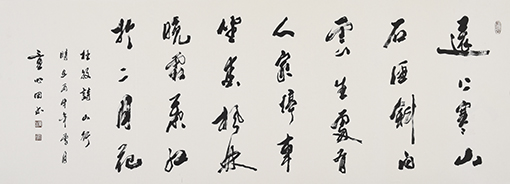 遠上寒山
石徑斜白
雲生處有
人家停車
坐愛楓林
晚霜葉紅
於二月花
杜牧詩山行
丙申年月